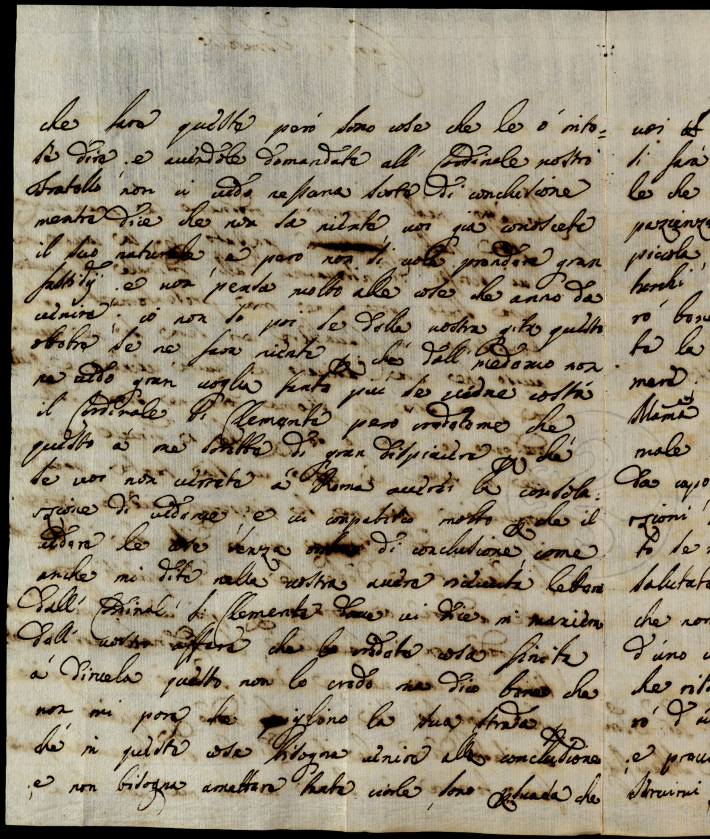 che sara queste però sono cose che le ó nito=
se dire . e avendole domandate all' Cardinale nostro
Fratello non ci vedo nessuna sorte di conclusione
mentre dice che non sà niente voi già conoscete
il suo naturale à pero non si vole prendere gran
fastidij . e non pensa molto alle cose che anno da
venire : io non so poi se dalla vostra gita questo
ottobre se ne farà niente che dall' medemo non
ne vedo gran voglia tanto più se viene costà
il Cardinale S. Clemente però credeteme che
questo à me sarebbe di gran dispiacere per chè
se voi non venrete à Roma averei la consola=
zione di vederve e vi compatisco molto per che il
vedere le cose senza di conclusione come
anche mi dite nella vostra avere ricevuta lettera
dall' Cardinal' S. Clemente dove vi dice in maniera
dall' vostro affare che la credete cosa finita
à dirvela questo non lo credo ma dico bene che
non mi pare che piglino la sua strada per
chè in queste cose bisogna venire alla conclusione
e non bisogna amettare tante ciarle sono persuada che
voi
si farà
le che
pazienza
picola
turchi
rò bene
te la
mere .
Mamà
male
da capo
zioni
to se
salutate
che non
d'uno
che rito
rò d'
e procu
servirvi